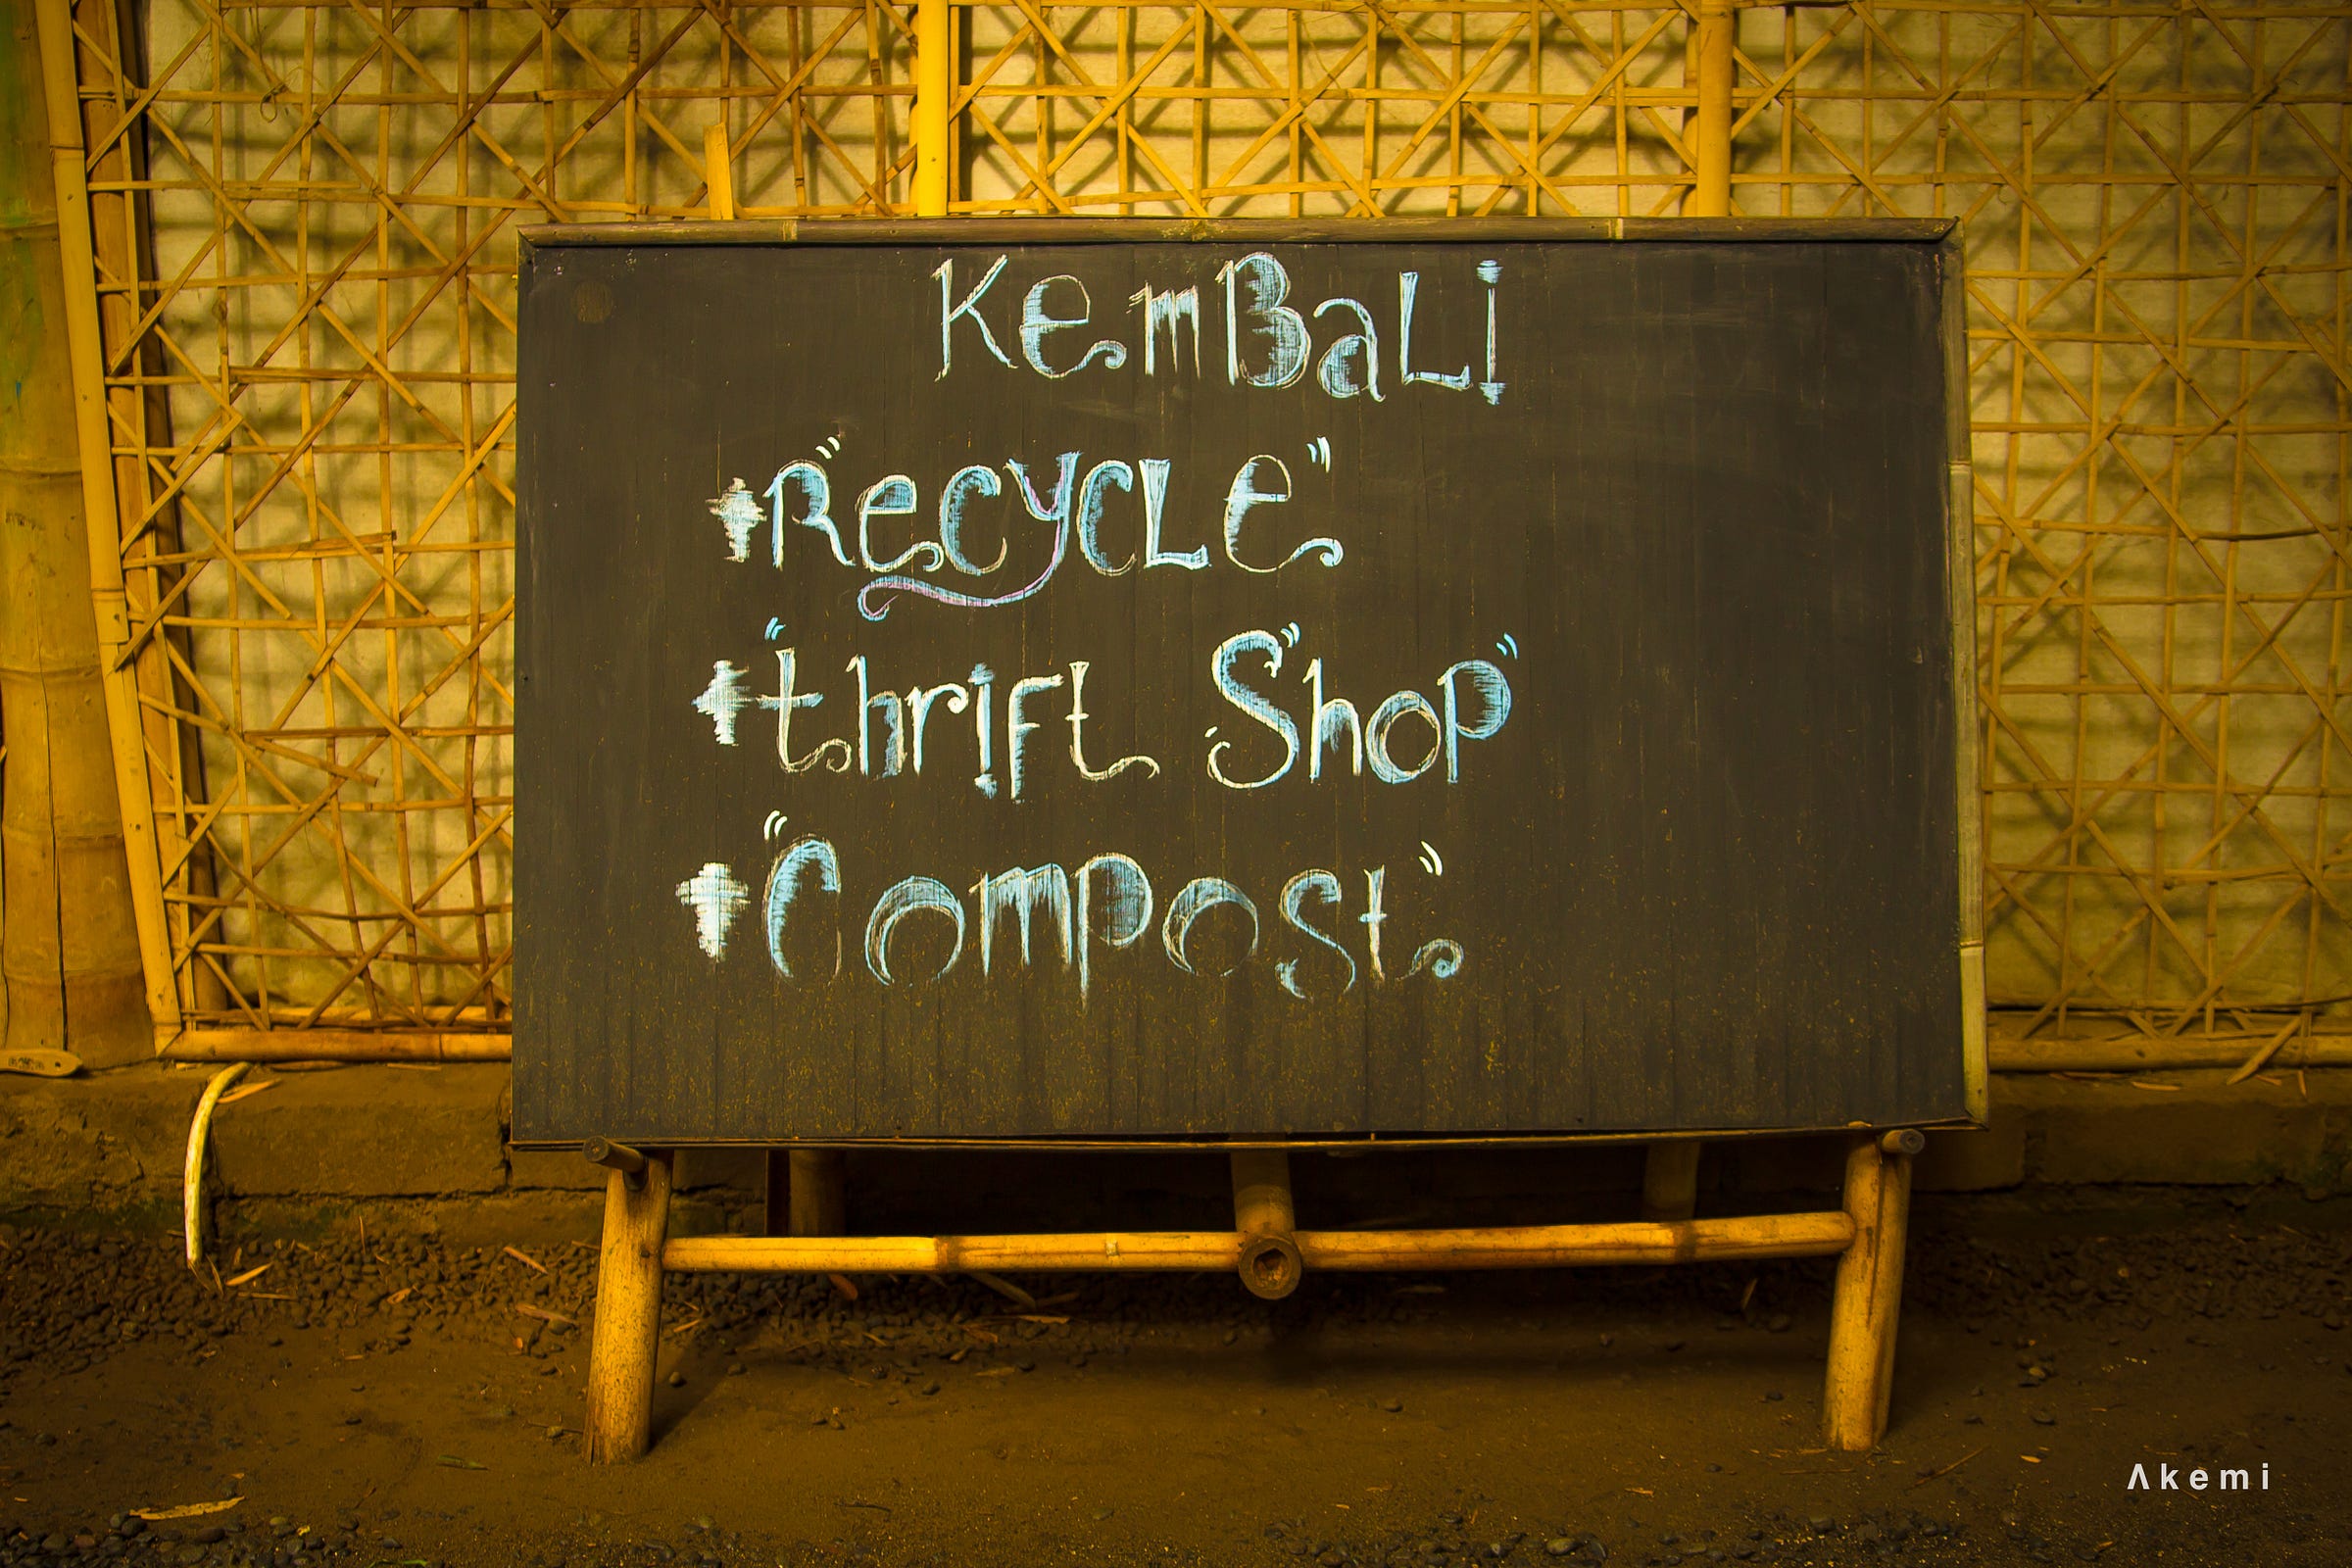 KemBaLi
+ "RecycLe"
+ "thrift Shop"
+ "Compost"
Λkemi